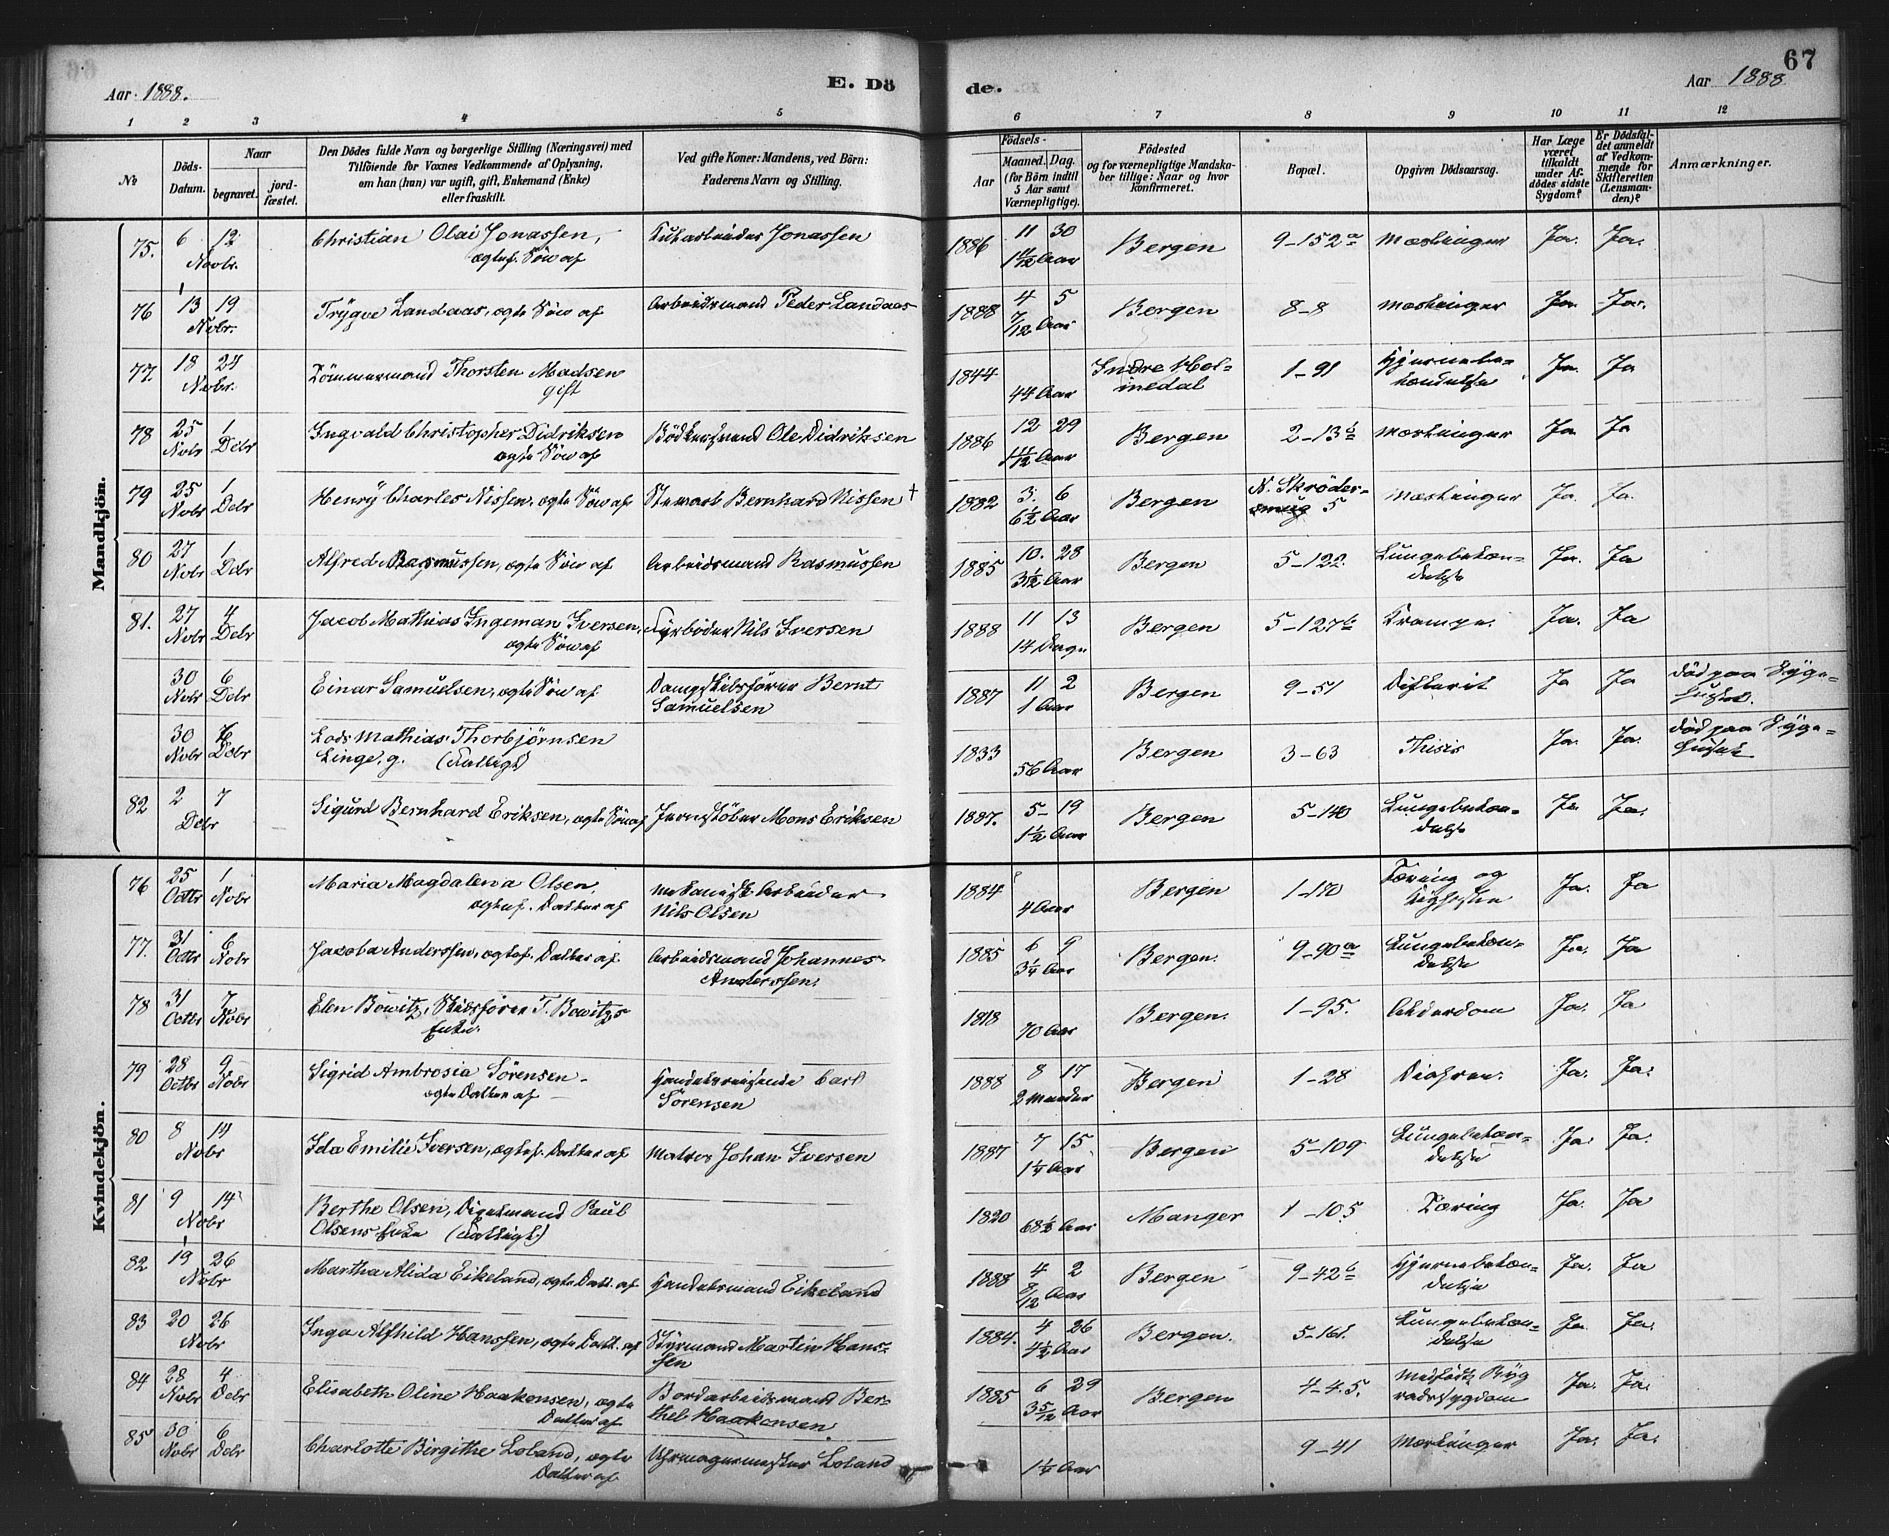 67
Aar 1888. E. Dö de. Aar 1888
1 2 3 4 5 6 7 8 9 10 11 12
No
Döds-Datum.
Naar begravet. jordfæstet.
Den Dödes fulde Navn og borgerlige Stilling (Næringsvei) med
Tilföiende for Voxnes Vedkommende af Oplysning,
om han (hun) var ugift, gift, Enkemand (Enke)
eller fraskilt.
Ved gifte Koner: Mandens, ved Börn:
Faderens Navn og Stilling.
Födsels-
Aar Maaned. Dag.
(for Börn indtil
5 Aar samt
Værnepligtige).
Födested
og for værnepligtige Mandska-
ber tillige: Naar og hvor
konfirmeret.
Bopæl.
Opgiven Dödsaarsag.
Har Læge
været
tilkaldt
under Af-
dödes sidste
Sygdom?
Er Dödsfal-
det anmeldt
af Vedkom-
mende for
Skifteretten
(Lensman-
den)?
Anmærkninger.
Mandkjön.
75. 6 12 Christian Olai Jonassen, Jonassen 1886 11 30 Bergen 9-152a Mæslinger Ja. Ja.
Novbr. ægtef. Søn af 1 11/12 Aar
76 13 19 Trygve Landaas, ægte Søn af Arbeidsmand Peder Landaas 1888 4 5 Bergen 8-8 Mæslinger Ja. Ja.
Nvbr. 7/12 Aar
77. 18 24 Tömmermand Thorsten Madsen 1844 Indre Hol- 1-91 Hjernebe- Ja. Ja
Novbr. gift 44 Aar medal tændelse
78 25 1 Ingvald Christopher Didriksen Bödkersvend Ole Didriksen 1886 12 29 Bergen 2-13b Mæslinger Ja Ja
Nvbr Debr ægte Søn af 1 11/12 Aar
79 25 1 Henry Charles Nissen, ægte Søn af Stewart Bernhard Nissen † 1882 3. 6 Bergen N. Skröder- Mæslinger Ja. Ja.
Nvbr Debr 6½ Aar smug 5
80 27 1 Alfred Rasmussen, ægte Søn af Arbeidsmand Rasmussen 1885 10. 28 Bergen 5-122. Lungebetæn- Ja. Ja
Nvbr Debr 3½ Aar delse
81. 27 4 Jacob Mathias Ingeman Iversen, Fyrböder Nils Iversen 1888 11 13 Bergen 5-127b Krampe. Ja. Ja
Nvbr Debr ægte Søn af 14 Dage
30 6 Einar Samuelsen, ægte Søn af Dampskibsförer Bernt 1887 11 2 Bergen 9-51 Difterit Ja Ja död paa Syge-
Nvbr Debr Samuelsen 1 Aar huset.
30 Mathias Thorbjörnsen 1833 Bergen 3-63 Thisis Ja. Ja. död paa Syge-
Nvbr Debr Linge, g. (Fattigt) 56 Aar huset
82 2 7 Sigurd Bernhard Eriksen, ægte Søn af Jernstöber Mons Eriksen 1887. 5 19 Bergen 5-140 Lungebetæn- Ja Ja.
Debr 1½ Aar delse
Kvindekjön.
76 25 1 Maria Magdalena Olsen, mekanisk Arbeider 1884 Bergen 1-110 Tæring og Ja. Ja
Octbr Nvbr ægtef. Datter af Nils Olsen 4 Aar
77. 31 6 Jacoba Anderssen, ægtef. Datter af Arbeidsmand Johannes 1885 6 9 Bergen. 9-90a Lungebetæn- Ja. Ja
Octbr Nvbr Anderssen. 3¼ Aar delse
78 31 7 Elen Bowitz, Skibsförer T. Bowitzs 1818 Bergen. 1-95. Alderdom Ja. Ja
Octbr Nvbr Enke. 70 Aar
79 28 9 Sigrid Ambrosia Sörensen Handelsreisende Carl 1888 8 17 Bergen 1-28 Diahree. Ja. Ja.
Octbr Nvbr ægte Datter af Sörensen 2 Maander
80 8 14 Ida Emilie Iversen, ægtef. Datter af Matros Johan Iversen 1887 7 15 Bergen 5-109 Lungebetæn- Ja. Ja.
Nvbr 1¼ Aar delse
81 9 14 Berthe Olsen, Paul 1820 Manger 1-105 Tæring Ja. Ja
Nvbr Olsens Enke (Fattigt) 68½ Aar
82 19 26 Martha Alida Eikeland, ægte Datt. af Handelsmand Eikeland 1888 4 2 Bergen 9-42b Hjernebetæn- Ja. Ja
Nvbr 8/12 Aar delse
83 20 26 Inga Alfhild Hanssen, ægte Datt. af Styrmand Martin Hans- 1884. 4 26 Bergen. 5-161. Lungebetæn- Ja. Ja.
Nvbr sen 4½ Aar delse
84 28 4 Elisabeth Oline Haakonsen, ægte Bordarbeidsmand Ber- 1885 6 29 Bergen 4-45. Medfödt Ryg Ja. Ja.
Nvbr Debr Datter af thel Haakonsen. 3 5/12 Aar radssygdom
85 30 6 Charlotte Birgithe Loland, ægte Uhrmagermester Loland 9-41 Mæslinger Ja. Ja.
Nvbr Debr Datter af 1¼ Aar